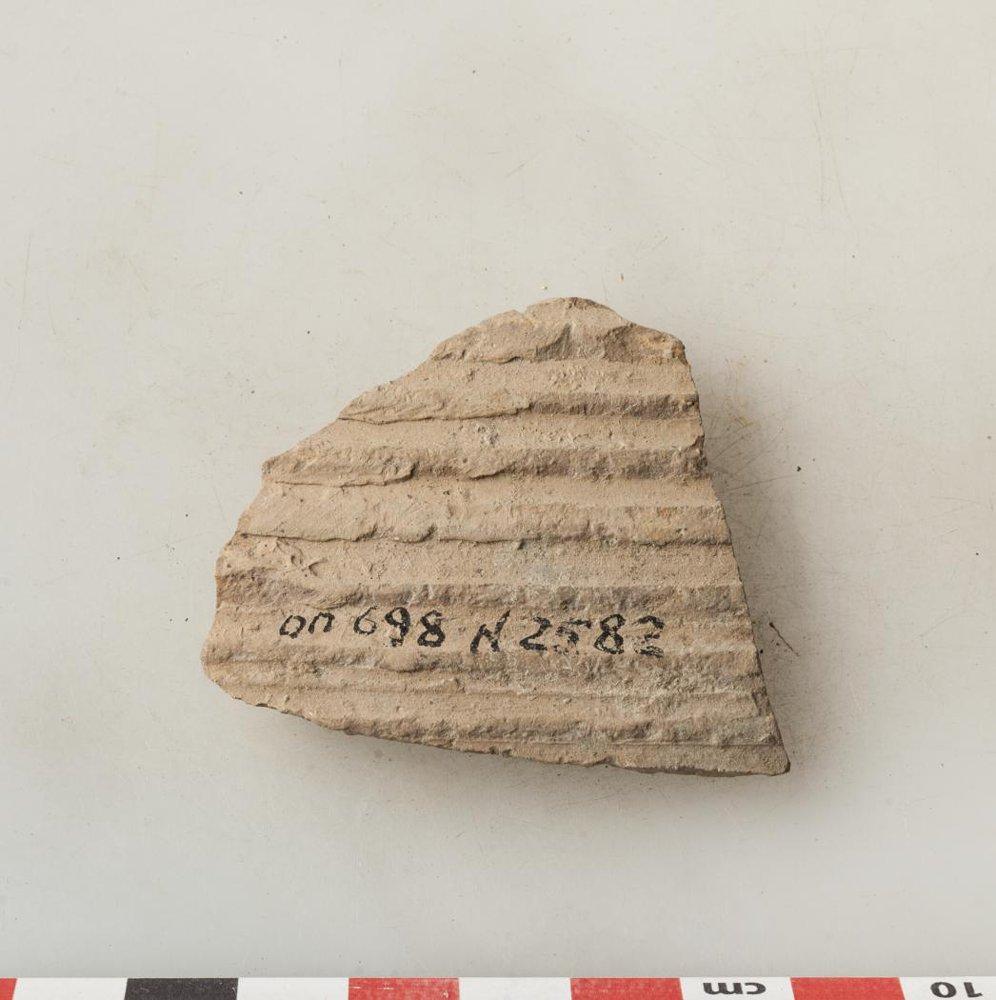 on 698 N 2582
cm 10